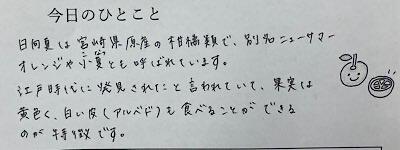 今日のひとこと
日向夏は宮崎県原産の柑橘類で、別名ニューサマー
こなつ
オレンジや小夏とも呼ばれています。
江戸時代に発見されたと言われていて、果実は
黄色く、白い皮(アルベド)も食べることができる
のが特徴です。